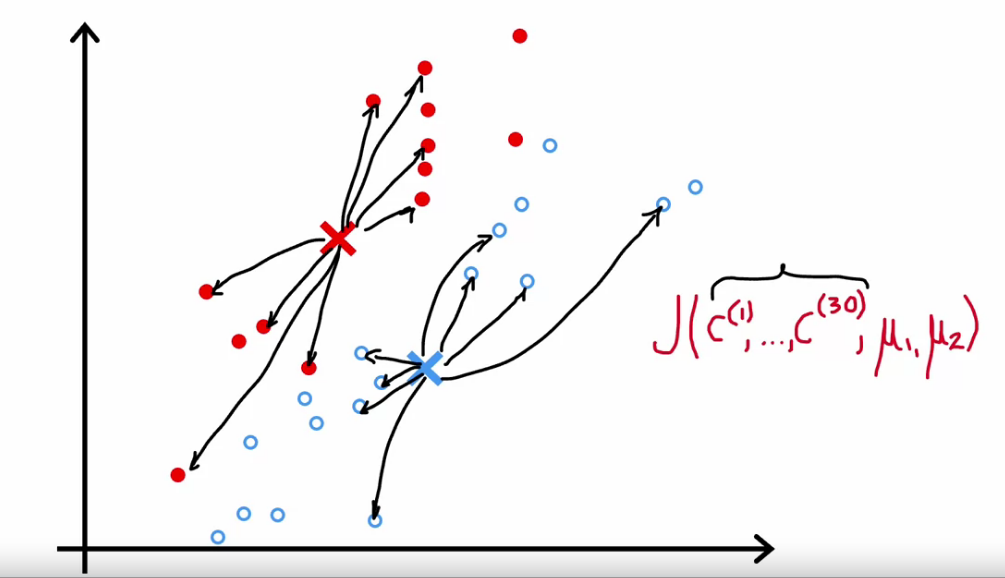 J(c^(1), ..., c^(30), μ₁, μ₂)